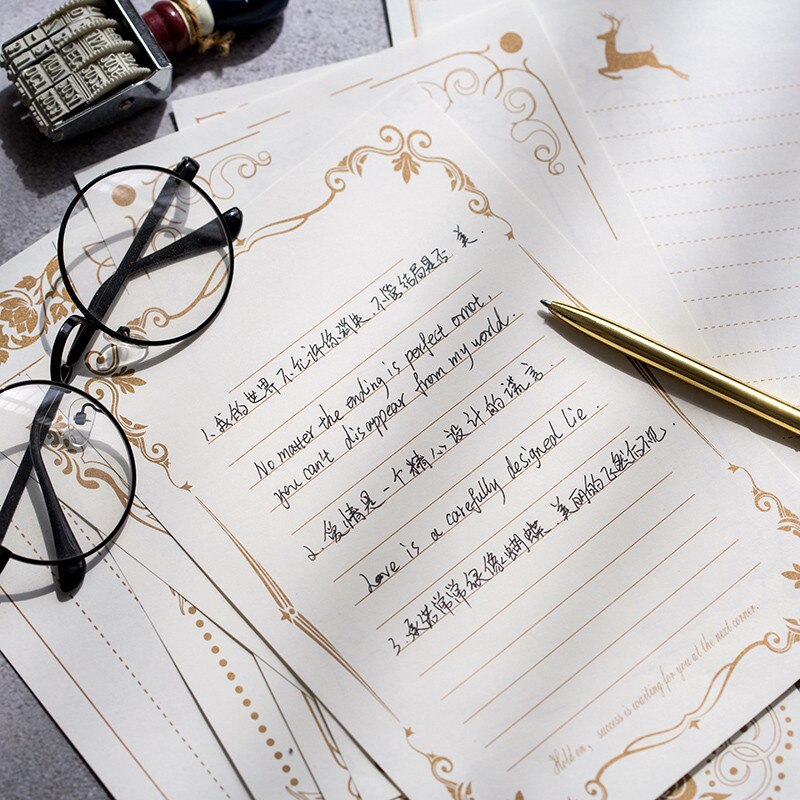 1.我的世界不允许你消失.不管结局是否 美.
No matter the ending is perfect or not,
you can't disappear from my world.
2.爱情是一个精心设计的谎言.
Love is a carefully designed lie.
3.承诺常常很像蝴蝶.美丽的飞然后不见.
Hold on, success is waiting for you at the next corner.